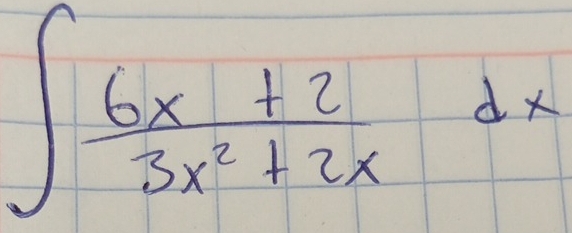 ∫ (6x + 2)/(3x² + 2x) dx